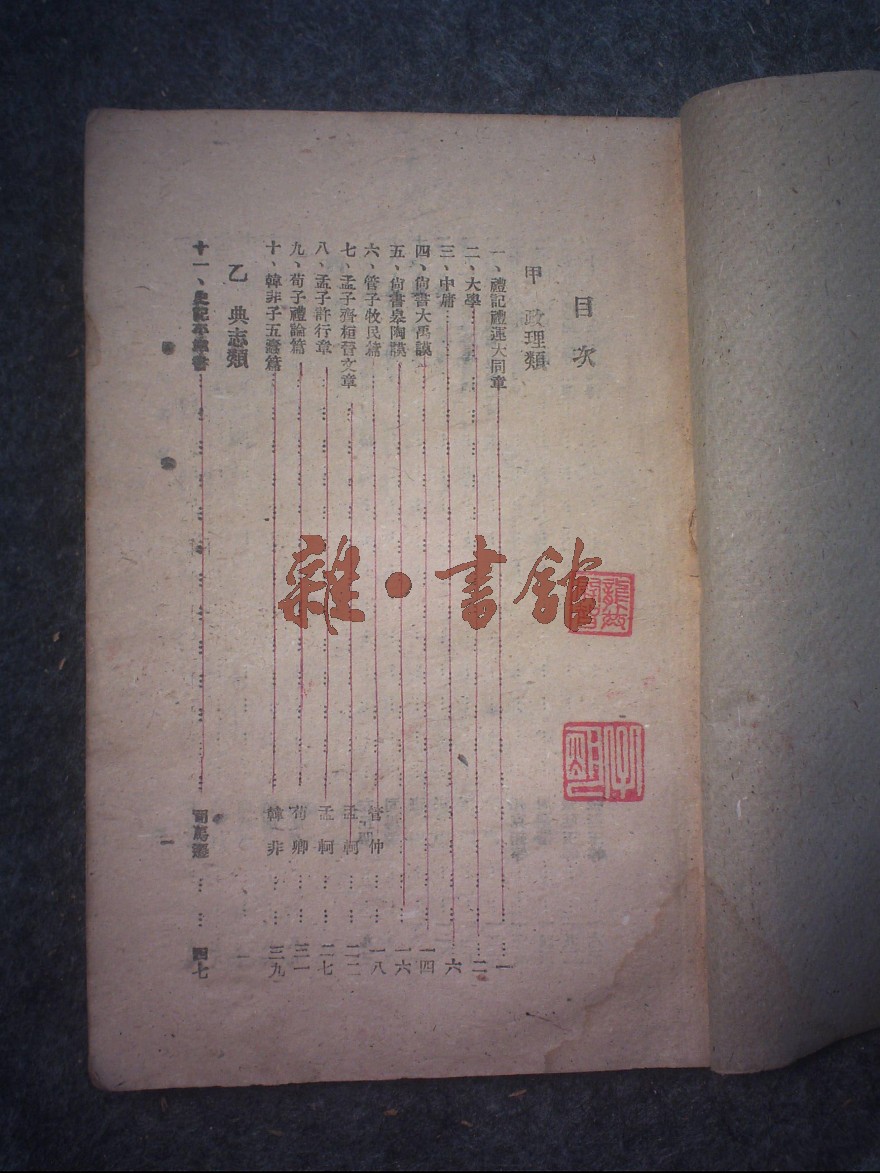 目次
甲 政理類
一、禮記禮運大同章……一
二、大學……二
三、中庸……六
四、尙書大禹謨……一四
五、尙書皋陶謨……一六
六、管子牧民篇……管仲……一八
七、孟子齊桓晉文章……孟軻……二二
八、孟子許行章……孟軻……二七
九、荀子禮論篇……荀卿……三一
十、韓非子五蠹篇……韓非……三九
乙 典志類
十一、史記平準書……司馬遷……四七
目 次
一
雜·書館